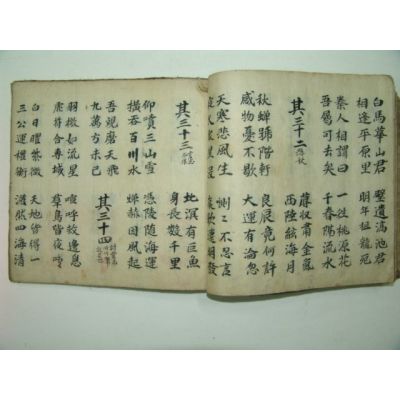 白馬華山君 璧遺鎬池君
相逢平原里 明年祖龍死
秦人相謂曰 一往桃源花
吾屬可去矣 千春隔流水
其三十二
蓐收肅金氣
西陸絃海月
秋蟬號階軒 良辰竟何許
感物憂不歇 大運有淪忽
天寒悲風生 惻惻不忍言
夜久衆星沒 哀歌達明發
其三十三
北溟有巨魚
身長數千里
仰噴三山雪 憑陵隨海運
橫吞百川水 燀赫因風起
吾觀摩天飛
九萬方未已
其三十四
羽檄如流星 喧呼救邊急
虎符合專城 羣鳥皆夜鳴
白日曜紫微 天地皆得一
三公運權衡 澹然四海清